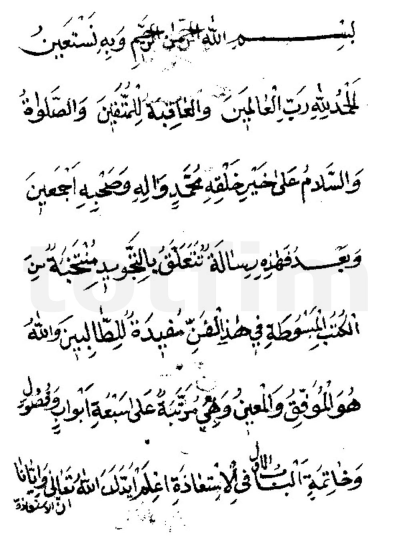 بِسْمِ اللهِ الرَّحْمٰنِ الرَّحِيْمِ وَبِهِ نَسْتَعِيْنُ
اَلْحَمْدُ لِلّٰهِ رَبِّ الْعَالَمِيْنَ وَالْعَاقِبَةُ لِلْمُتَّقِيْنَ وَالصَّلَوةُ
وَالسَّلَامُ عَلٰى خَيْرِ خَلْقِهِ مُحَمَّدٍ وَاٰلِهِ وَصَحْبِهِ اَجْمَعِيْنَ
وَبَعْدُ فَهٰذِهِ رِسَالَةٌ تَتَعَلَّقُ بِالتَّجْوِيْدِ مُنْتَخَبَةٌ مِنَ
الْكُتُبِ الْمَبْسُوْطَةِ فِي هٰذَا الْفَنِّ مُفِيْدَةٌ لِلطَّالِبِيْنَ وَاللهُ
هُوَ الْمُوَفِّقُ وَالْمُعِيْنُ وَهِيَ مُرَتَّبَةٌ عَلٰى سَبْعَةِ اَبْوَابٍ وَفُصُوْلٍ
وَخَاتِمَةٍ اَلْبَابُ الْاَوَّلُ فِي الْاِسْتِعَاذَةِ اِعْلَمْ اَيَّدَكَ اللهُ تَعَالٰى وَاِيَّانَا
ان الاستعاذة
totfim